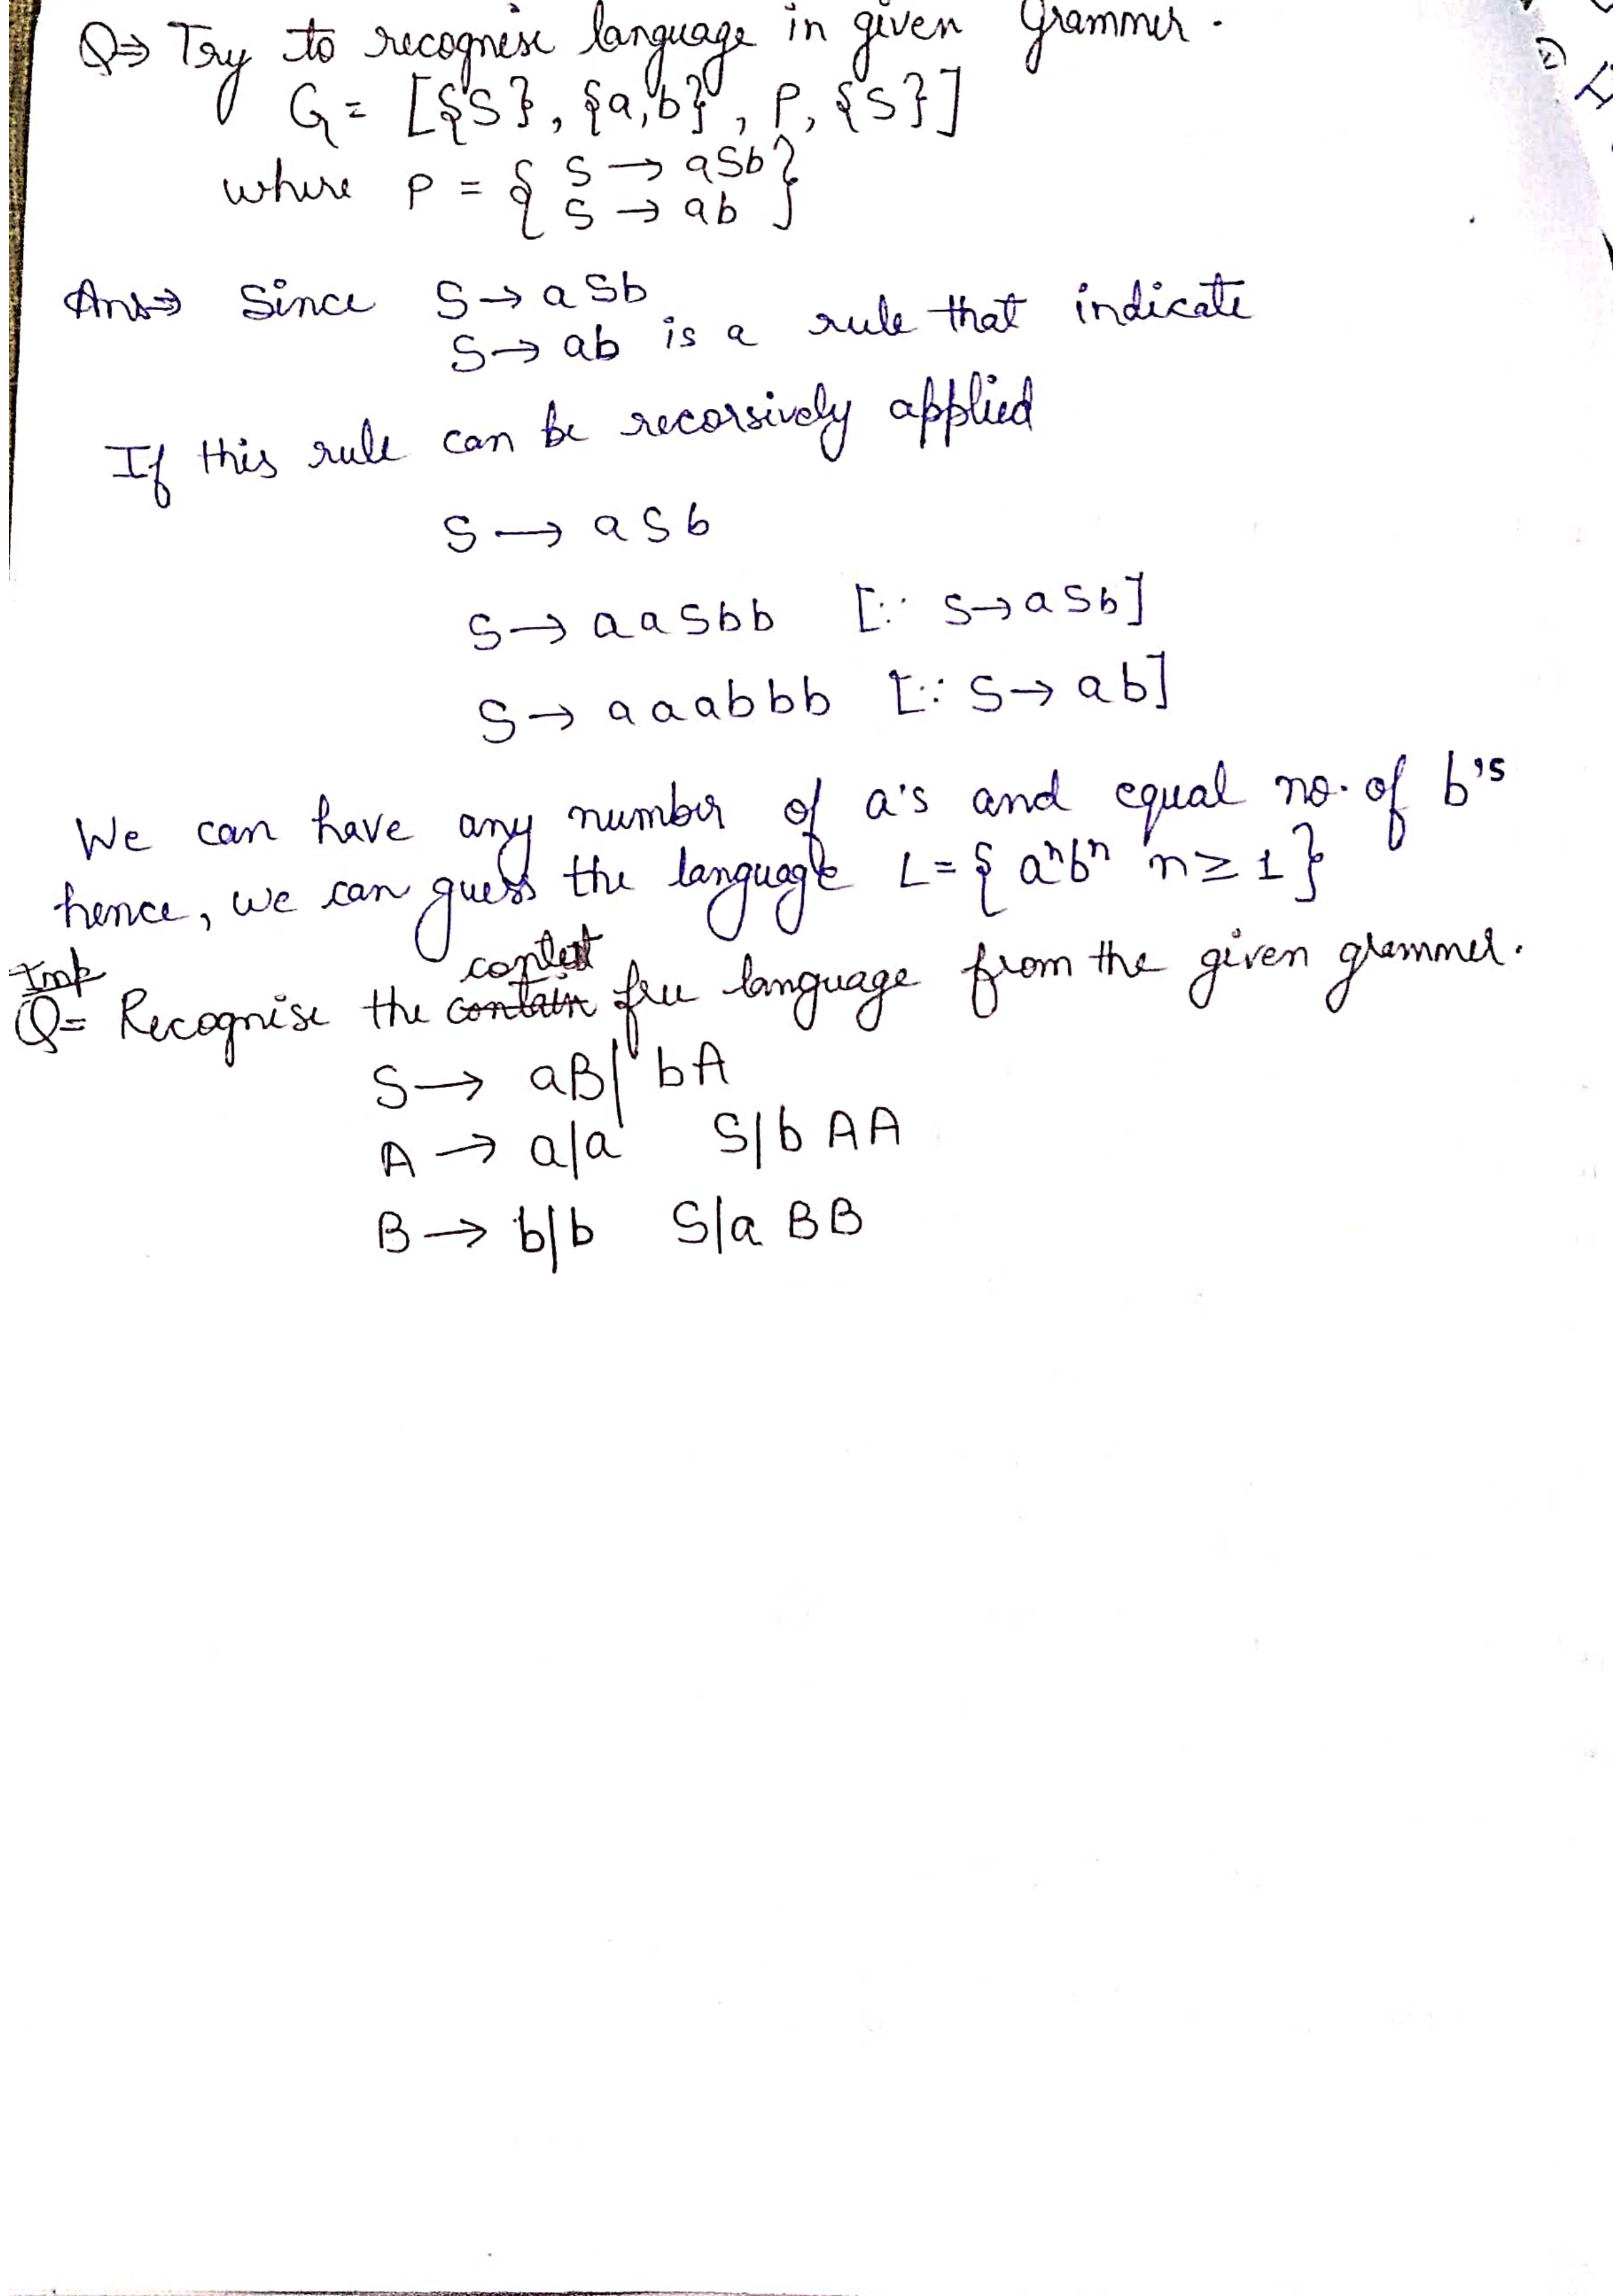 Q⇒ Try to recognise language in given Grammer.
G = [{S}, {a,b}, P, {S}]
where P = { S → aSb
S → ab }
Ans⇒ Since S → aSb
S → ab is a rule that indicate
If this rule can be recorsively applied
S → aSb
S → aaSbb [∵ S → aSb]
S → aaabbb [∵ S → ab]
We can have any number of a's and equal no. of b's
hence, we can guess the language L = { aⁿbⁿ n ≥ 1 }
Imp
Q= Recognise the contain context free language from the given grammer.
S → aB | bA
A → a|a S|b AA
B → b|b S|a BB